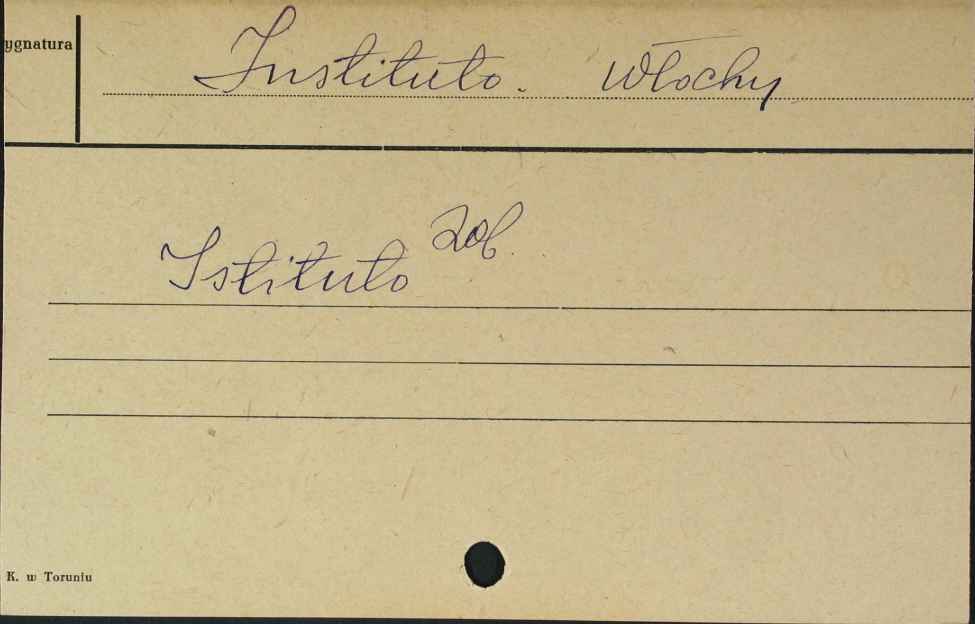 ygnatura
Instituto. Włochy
zob.
Istituto
K. w Toruniu